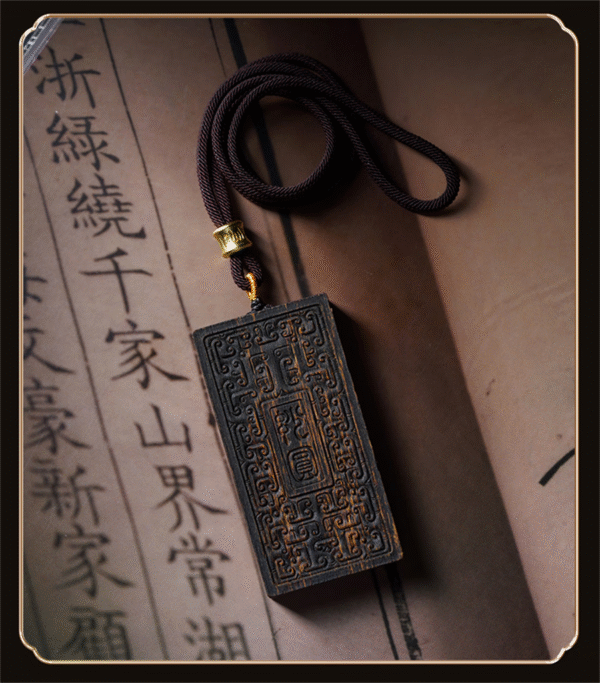 浙綠繞千家山界常湖
文豪新家顧